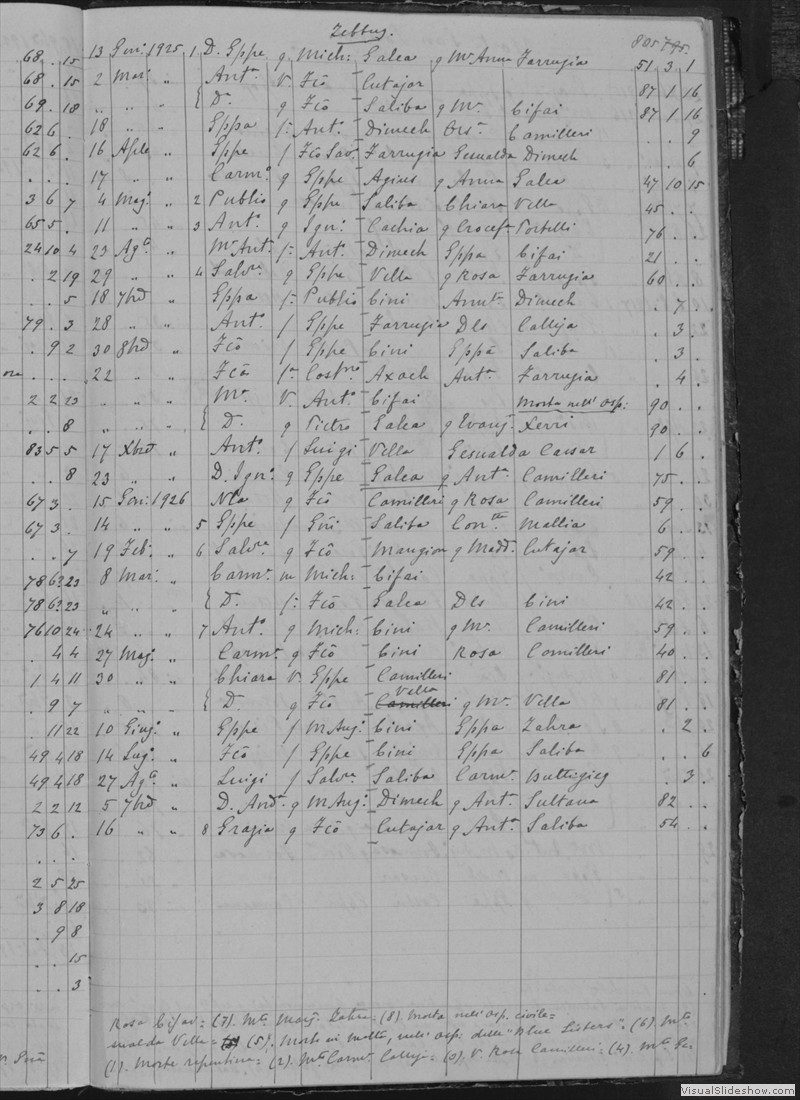 Zebbug. 805 795
68 . 15 13 Gen: 1925 1 D. Eppe g Mich: Galea g Mª Anna Farrugia 51 3 1
68 . 15 2 Mar: „ Antº V. Fcõ Cutajar 87 1 16
69 . 18 „ „ „ { D. g Fcõ Saliba g Mª Cifai 87 1 16
62 6 . 18 „ „ Eppa f: Antº Dimech Camilleri . . 9
62 6 . 16 Aple „ Eppe f Fcõ Sav. Farrugia Gesualda Dimech . . 6
. . . 17 „ „ Carmª g Eppe Agius g Anna Galea 47 10 15
3 6 7 4 Mag: „ 2 Publio g Eppe Saliba Chiara Vella 45 . .
65 5 . 11 „ „ 3 Antº g Ign: Cachia g Crocefª Portelli 76 . .
24 10 4 23 Agº „ Mª Antª f: Antº Dimech Eppa Cifai 21 . .
. 2 19 29 „ „ 4 Salvª g Eppe Vella g Rosa Farrugia 60 . .
. . 5 18 7bre „ Eppa f: Publio Cini Annª Dimech . 7 .
79 . 3 28 „ „ Antº f Eppe Farrugia Dls Calleja . 3 .
. 9 2 30 8bre „ Fcõ f Eppe Cini Eppa Saliba . 3 .
. . . 22 „ „ Fcã fª Costno Axach Antª Farrugia . 4 .
2 2 23 „ „ „ Mª V. Antº Cifai Morta nell' Osp: 90 . .
. . 8 „ „ „ { D. g Pietro Galea g Evang: Xerri 90 . .
83 5 5 17 Xbre „ Antº f Luigi Vella Gesualda Caesar 1 6 .
. . 8 23 „ „ D. Ign: g Eppe Galea g Antª Camilleri 75 . .
67 3 . 15 Gen: 1926 Nla g Fcõ Camilleri g Rosa Camilleri 59 . .
67 3 . 14 „ „ 5 Eppe f Saliba Mallia 6 . .
. . 7 19 Feb: „ 6 Salvª g Fcõ Mangion g Madd: Cutajar 59 . .
78 6 23 8 Mar: „ Carmª m Mich: Cifai 42 . .
78 6 23 „ „ „ { D. f: Fcõ Galea Dls Cini 42 . .
76 10 24 24 „ „ 7 Antº g Mich: Cini g Mª Camilleri 59 . .
. 4 4 27 Mag: „ Carmª g Fcõ Cini Rosa Camilleri 40 . .
1 4 11 30 „ „ Chiara V. Eppe Camilleri 81 . .
Vella
. 9 7 „ „ „ { D. g Fcõ Camilleri g Mª Vella 81 . .
. 11 22 10 Giug: „ Eppe f M Aug: Cini Eppa Zahra . 2 .
49 4 18 14 Lug: „ Fcõ f Eppe Cini Eppa Saliba . . 6
49 4 18 27 Agº „ Luigi f Salvª Saliba Carmª Buttigieg . 3 .
2 2 12 5 7bre „ D. And: g M Aug: Dimech g Antª Sultana 82 . .
73 6 . 16 „ „ 8 Grazia g Fcõ Cutajar g Antª Saliba 54 . .
. . .
2 5 25
3 8 18
. 9 8
. . 15
. . 3
Rosa Cifai = (7). Mta Marg: Zahra = (8). Morta nell' Osp. civile =
ualda Vella = (5). Morto in Malta, nell' Osp: delle "Blue Sisters". (6). Mta
(1). Morte repentina = (2). Mta Carmª Calleja = (3). V. Rosa Camilleri = (4). Mta
VisualSlideshow.com